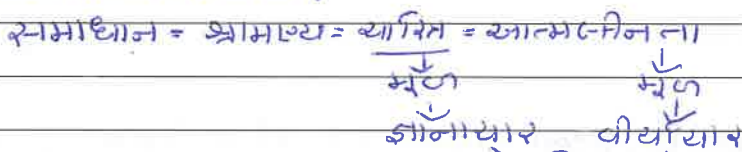 समाधान = श्रामण्य = चारित्र = आत्मलीनता
मूळ मूळ
ज्ञानाचार वीर्याचार